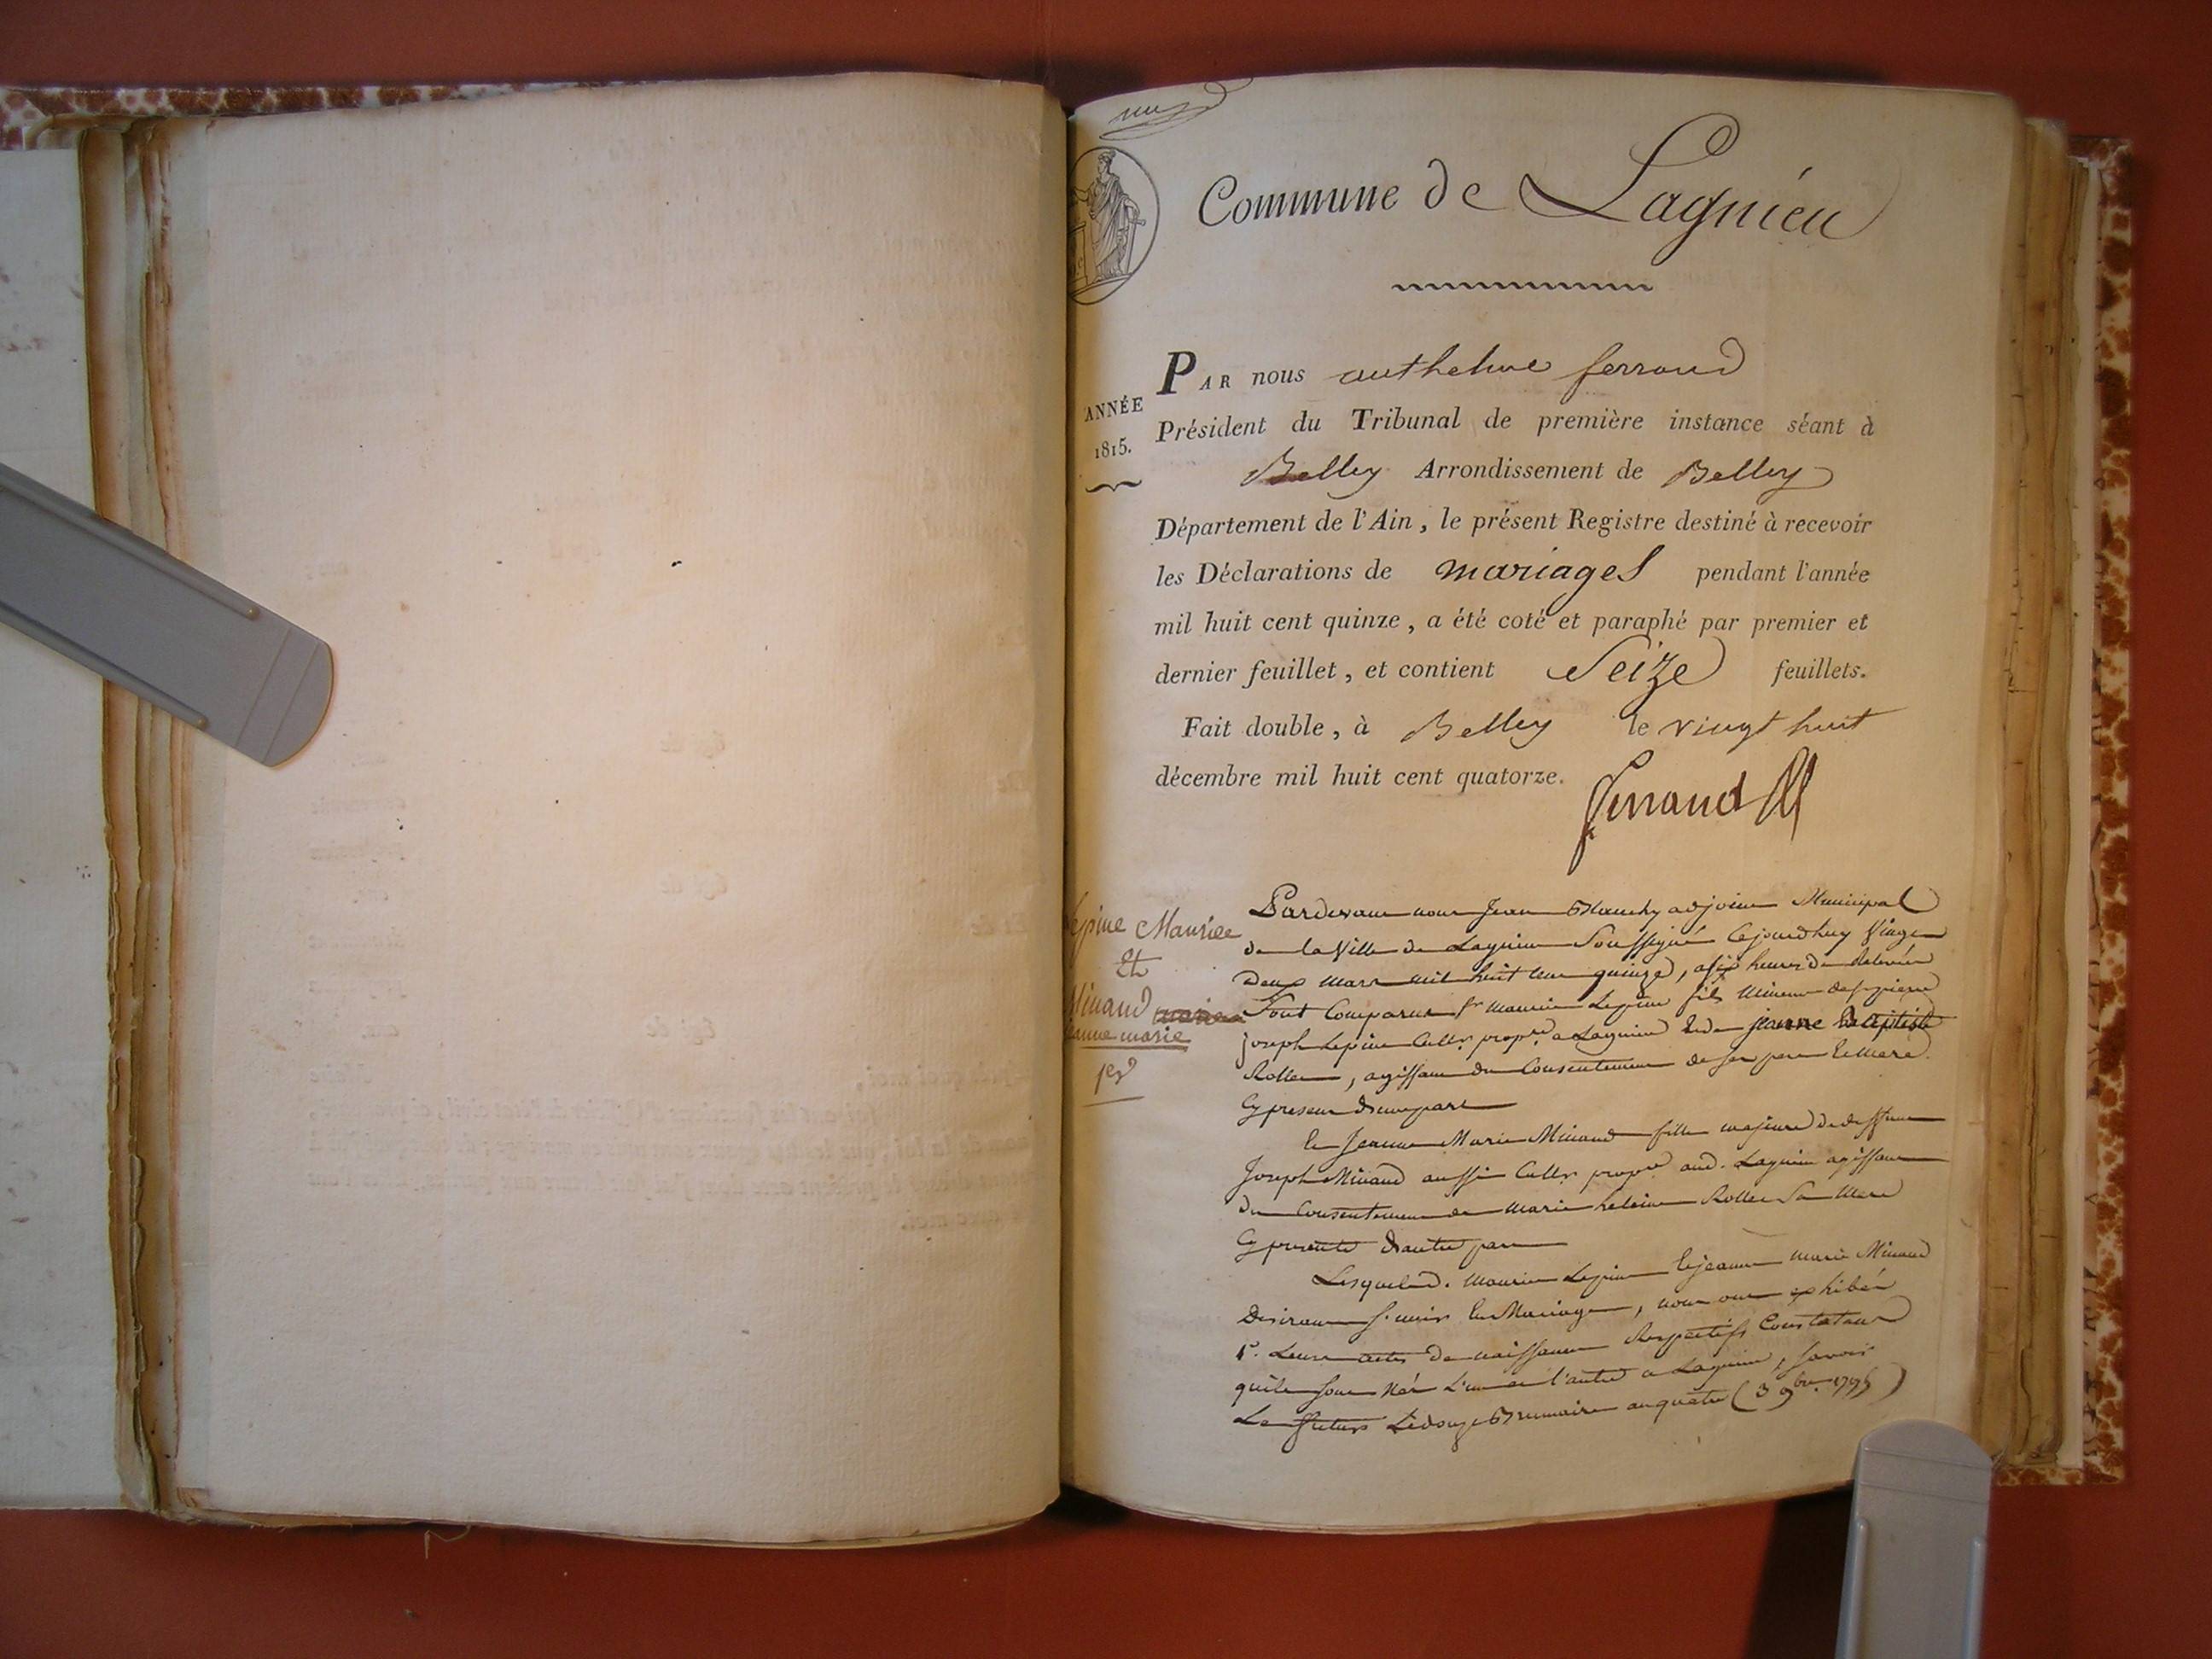 Commune de Lagnieu
ANNÉE
1815.
PAR nous anthelme ferrand
Président du Tribunal de première instance séant à
Belley Arrondissement de Belley
Département de l'Ain, le présent Registre destiné à recevoir
les Déclarations de mariages pendant l'année
mil huit cent quinze, a été coté et paraphé par premier et
dernier feuillet, et contient Seize feuillets.
Fait double, à Belley le vingt huit
décembre mil huit cent quatorze.
ferrand
Lepine Maurice
Et
Minaud
jeanne marie
1er
Pardevant nous Jean adjoint Municipal
de la Ville de Lagnieu Soussigné Cejourdhuy Vingt
Deux mars mil huit cent quinze, a six heures de Relevée
Sont Comparus Sr maurice Lepine fils Mineur de Sr pierre
joseph Lepine Cultr propre a Lagnieu Et de jeanne Baptiste
Rollet, agissant du Consentement de Ses pere Et Mere
Cy presens D'une part
Et Jeanne Marie Minaud fille majeure de deffunt
Joseph Minaud aussi Cultr propre aud. Lagnieu agissant
du Consentement de marie heleine Rollet Sa Mere
Cy presente D'autre part
Lesquels d. maurice Lepine Et jeanne marie Minaud
Desirant S'unir En Mariage, nous ont exhibés
1o. Leurs actes de naissance Respectifs Constatant
qu'ils Sont Nés L'un et l'autre a Lagnieu, Savoir
Le ffuturs Le douze Brumaire an quatre (3 9bre 1795)